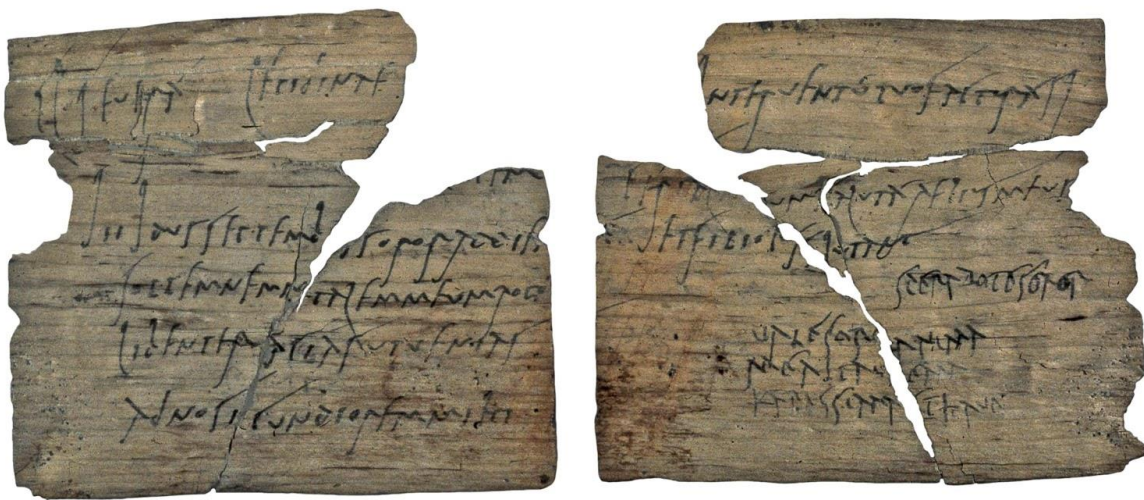 Cl Seuerá Lepidinae
iii Idus Septembr s soror ad diem
sollemnem natalem meum rogó
libenter faciás ut uenias
ad nos iucundiorem mihi
interuentú tuo facturá si
uum salutá Aelius meus
et filiolus salutant
sperabo te soror
uale soror anima
mea ita ualeam
karissima et haue